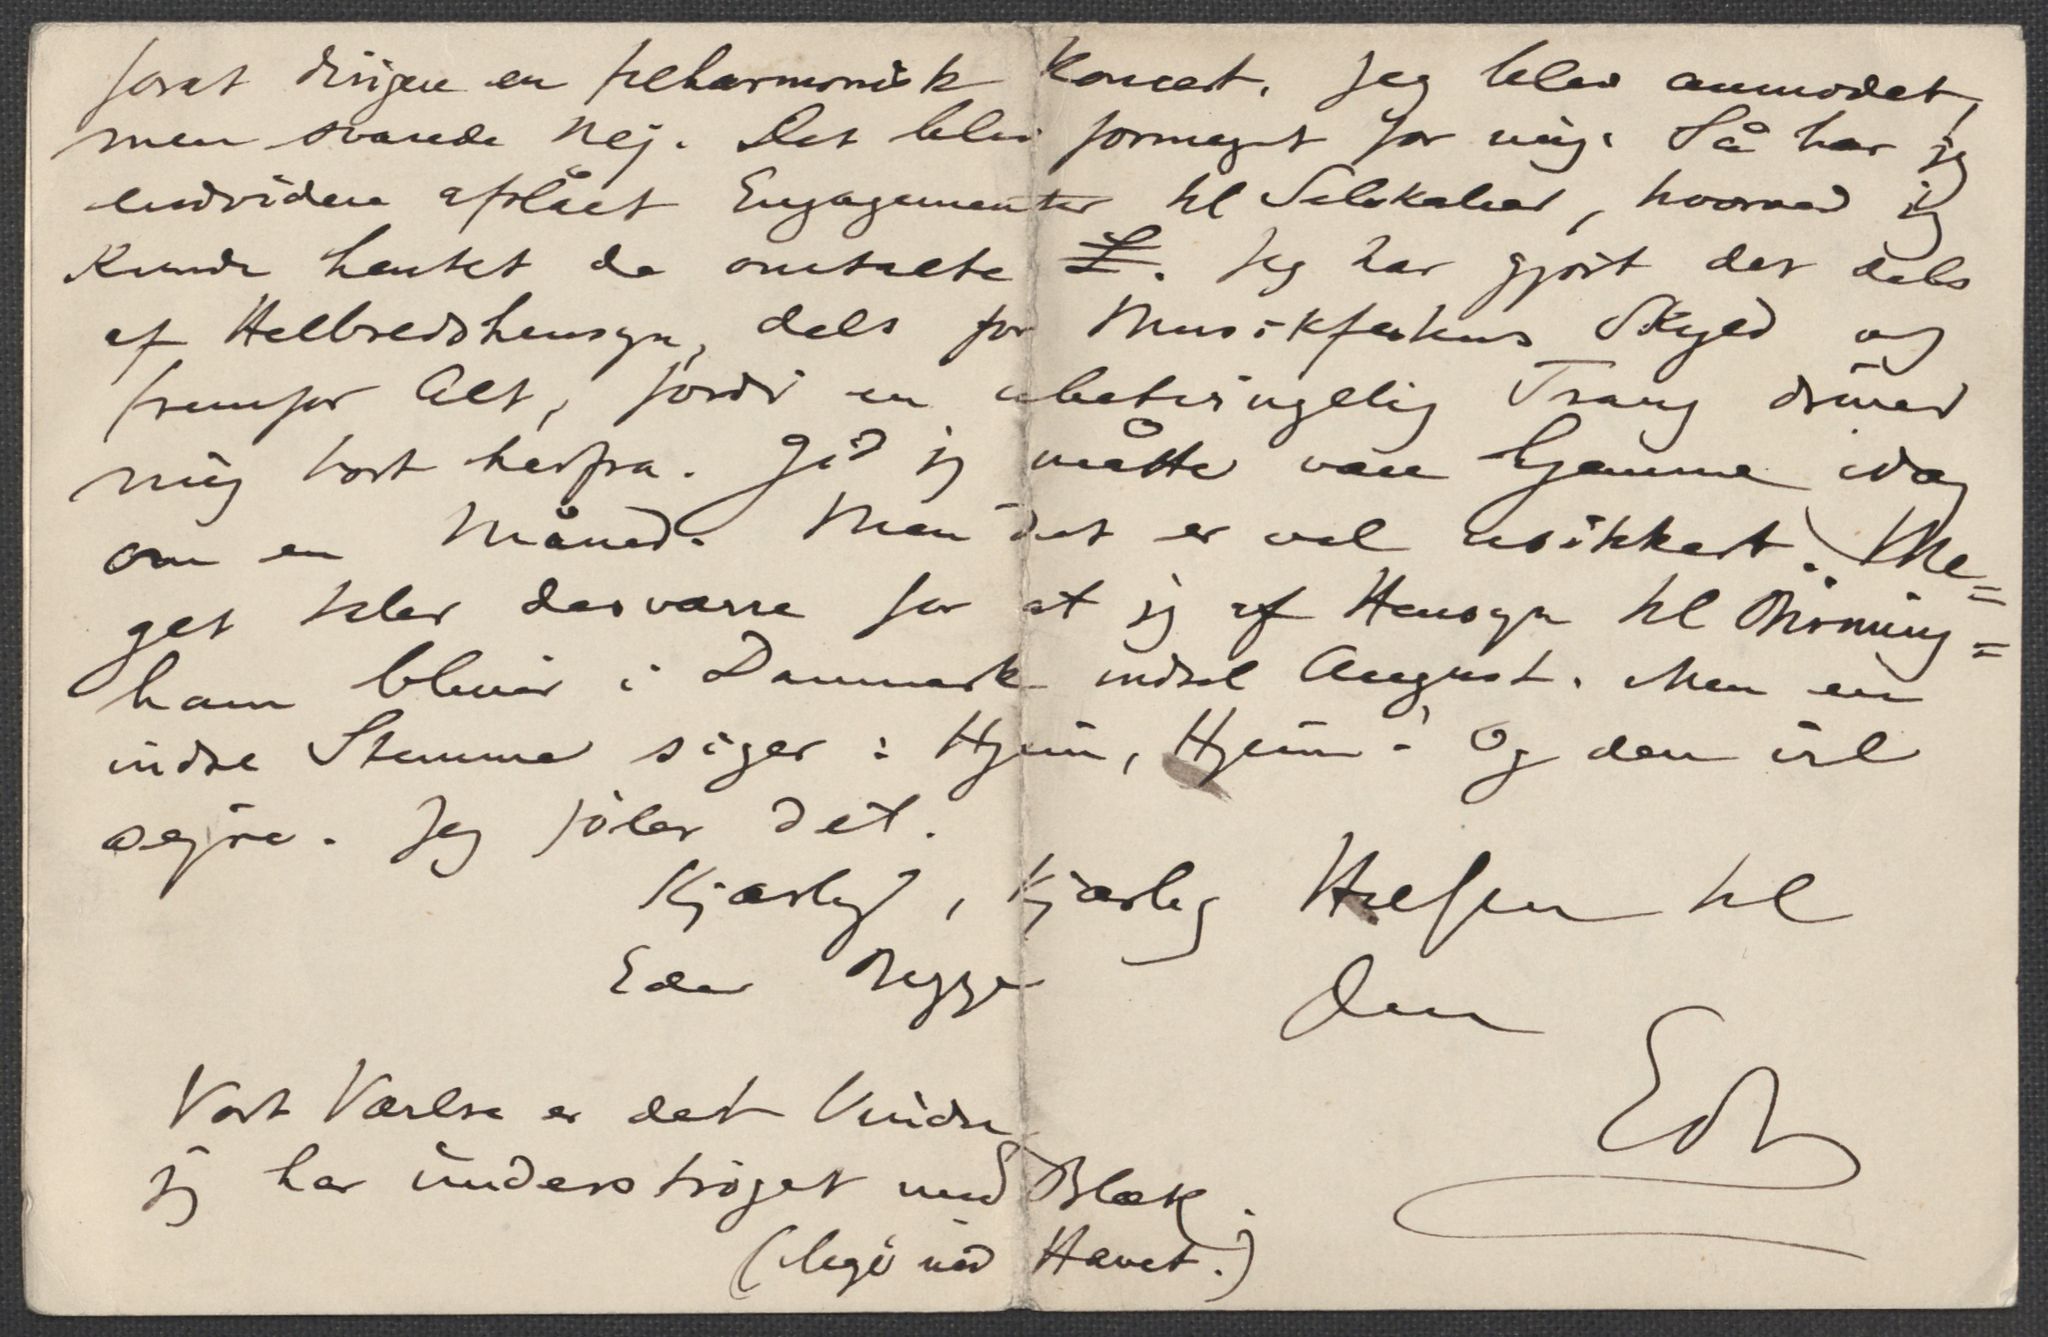 forat dirigere en filharmonisk Koncert. Jeg blev anmodet,
men svarede Nej. Det blev formeget for mig. Så har jeg
endvidere afslået Engagementer til Selskaber, hvorved jeg
kunde hentet de omtalte £. Jeg har gjort det dels
af Helbredshensyn, dels for Musikfestens Skyld og
fremfor Alt, fordi en ubetvingelig Trang driver
mig bort herfra. Gid jeg måtte være hjemme idag
om en Måned. Men det er vel usikkert. Me=
get taler desværre for at jeg af Hensyn til Birming=
ham bliver i Danmark indtil August. Men en
indre Stemme siger: Hjem, Hjem! Og den vil
sejre. Jeg føler det.
Kjærlig, kjærlig Hilsen til
Eder Begge
Din
Edv
Vort Værelse er det Vindu
jeg har understrøget med Blæk.
( ud Havet.)